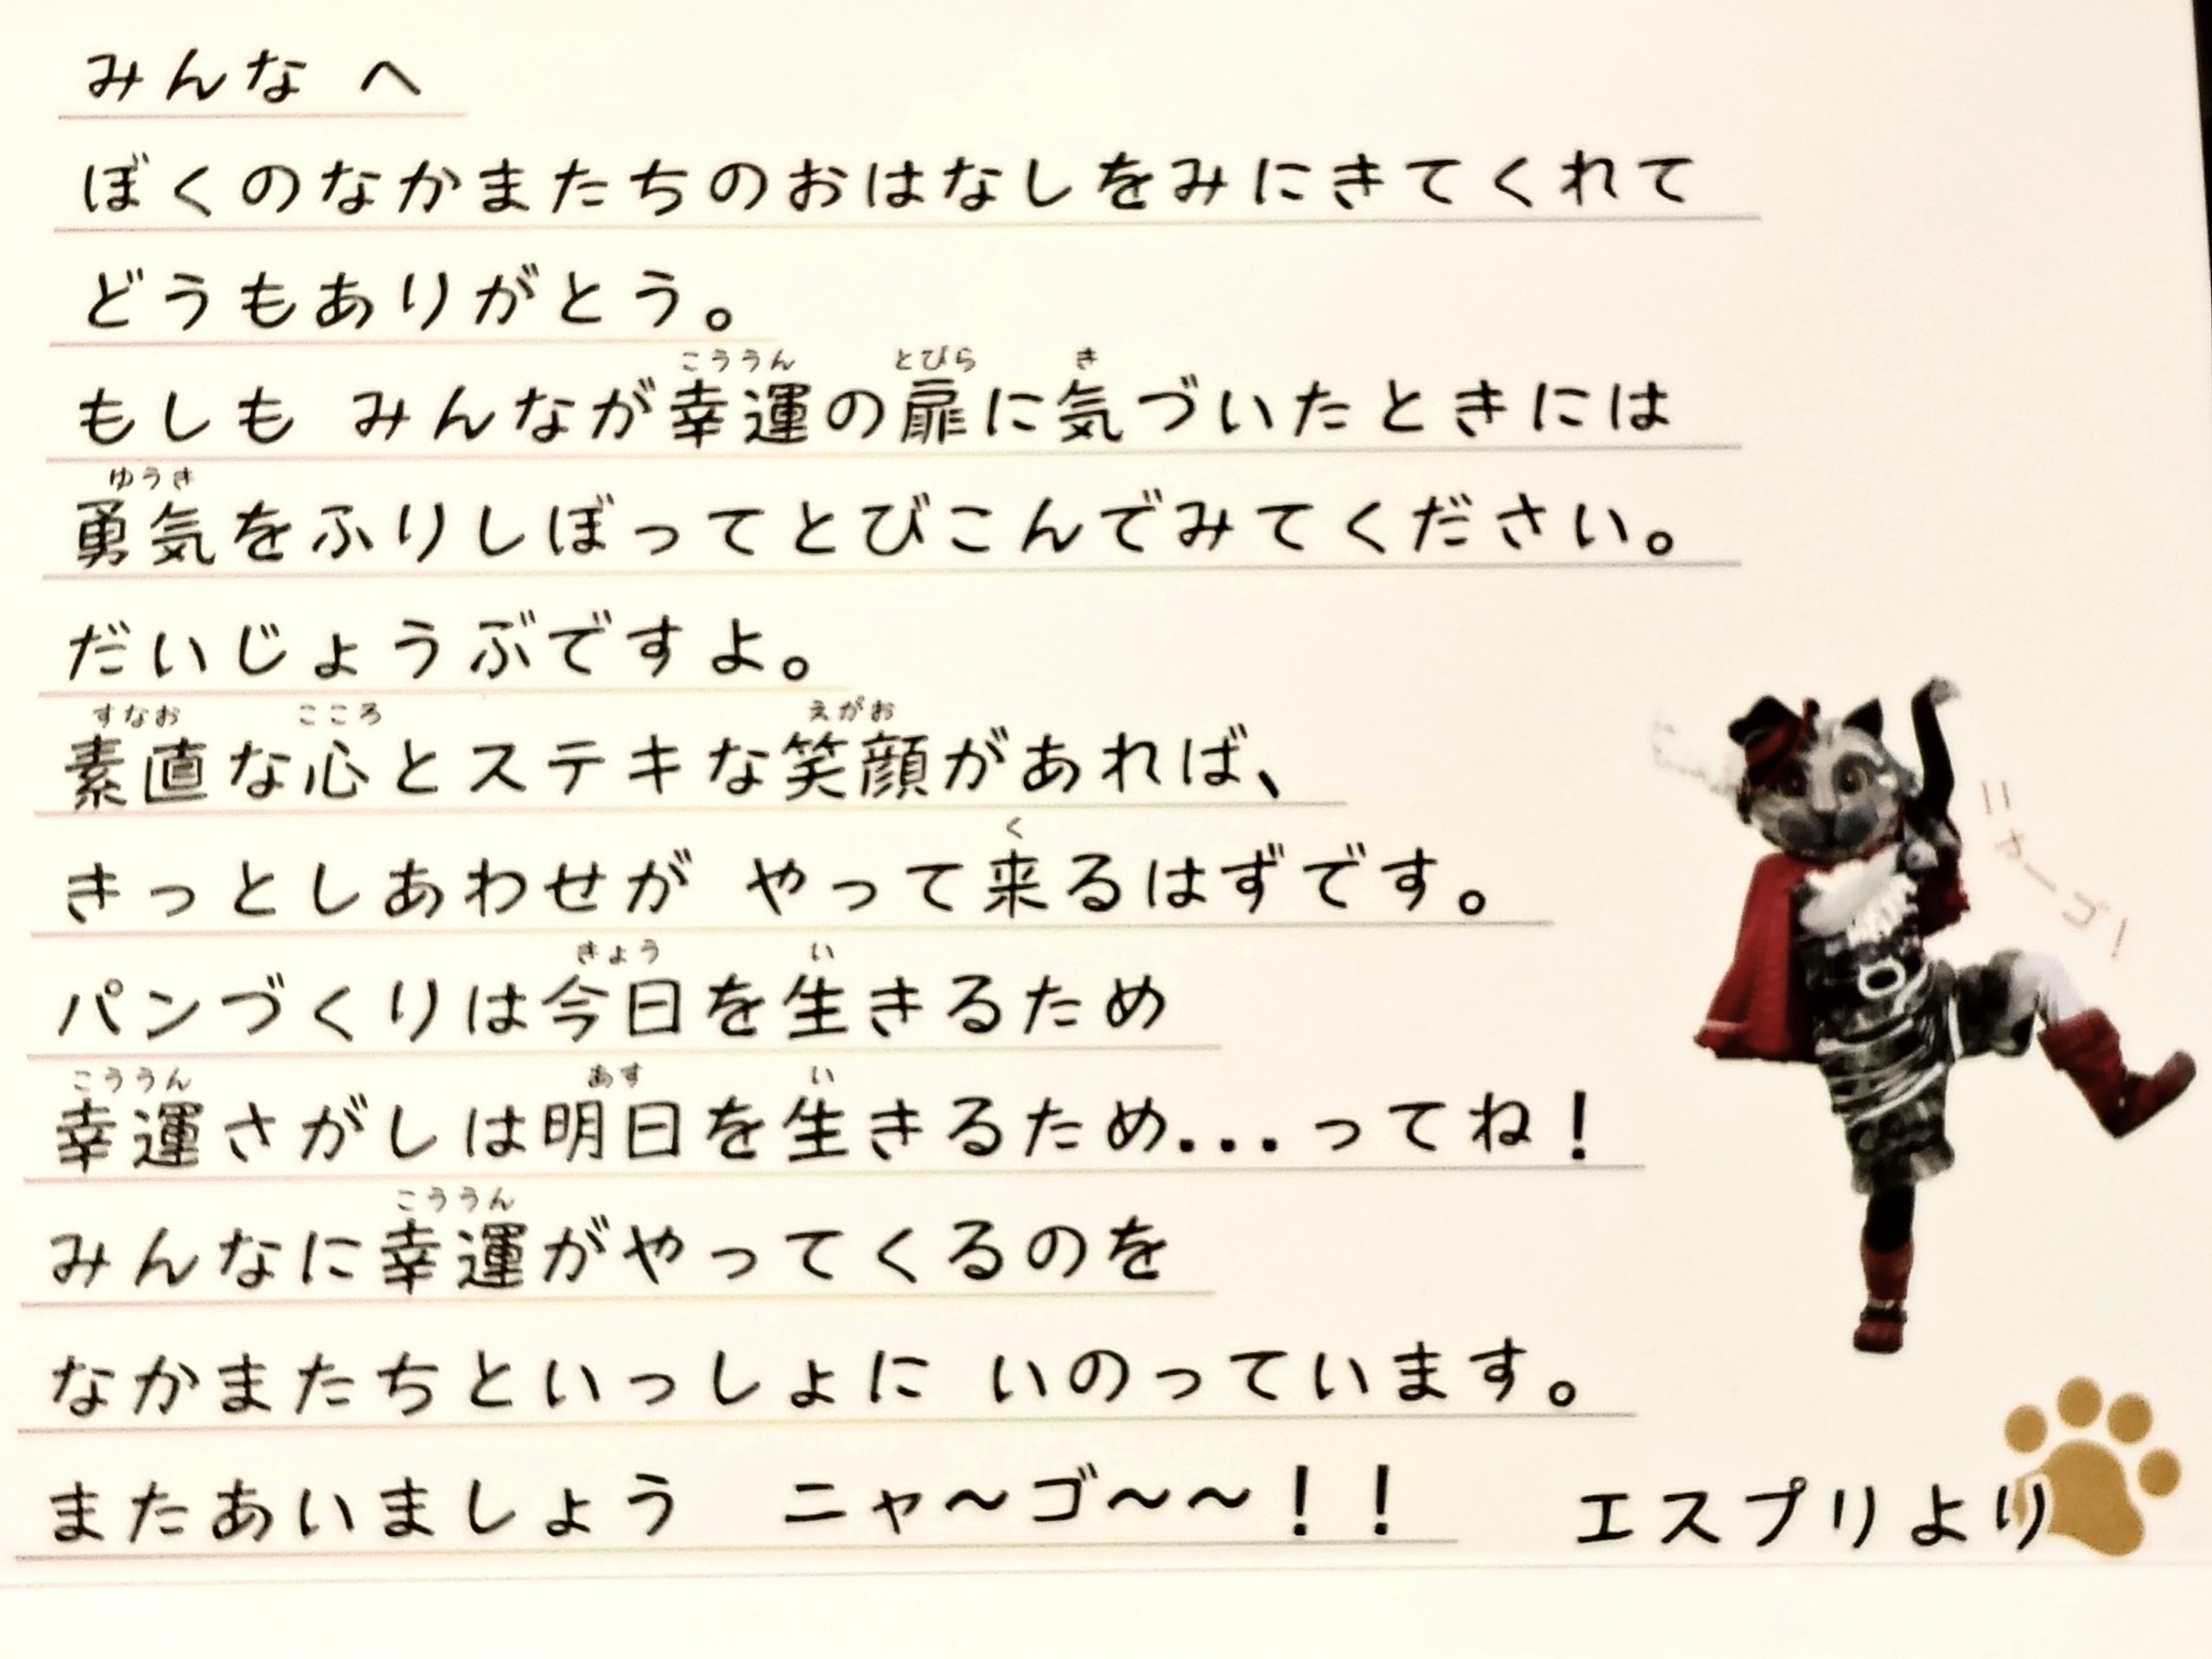 みんな へ
ぼくのなかまたちのおはなしをみにきてくれて
どうもありがとう。
こううん とびら き
もしも みんなが幸運の扉に気づいたときには
ゆうき
勇気をふりしぼってとびこんでみてください。
だいじょうぶですよ。
すなお こころ えがお
素直な心とステキな笑顔があれば、
く
きっとしあわせが やって来るはずです。
きょう い
パンづくりは今日を生きるため
こううん あす い
幸運さがしは明日を生きるため...ってね！
こううん
みんなに幸運がやってくるのを
なかまたちといっしょに いのっています。
またあいましょう ニャ〜ゴ〜〜！！
エスプリより
ニャーゴ！